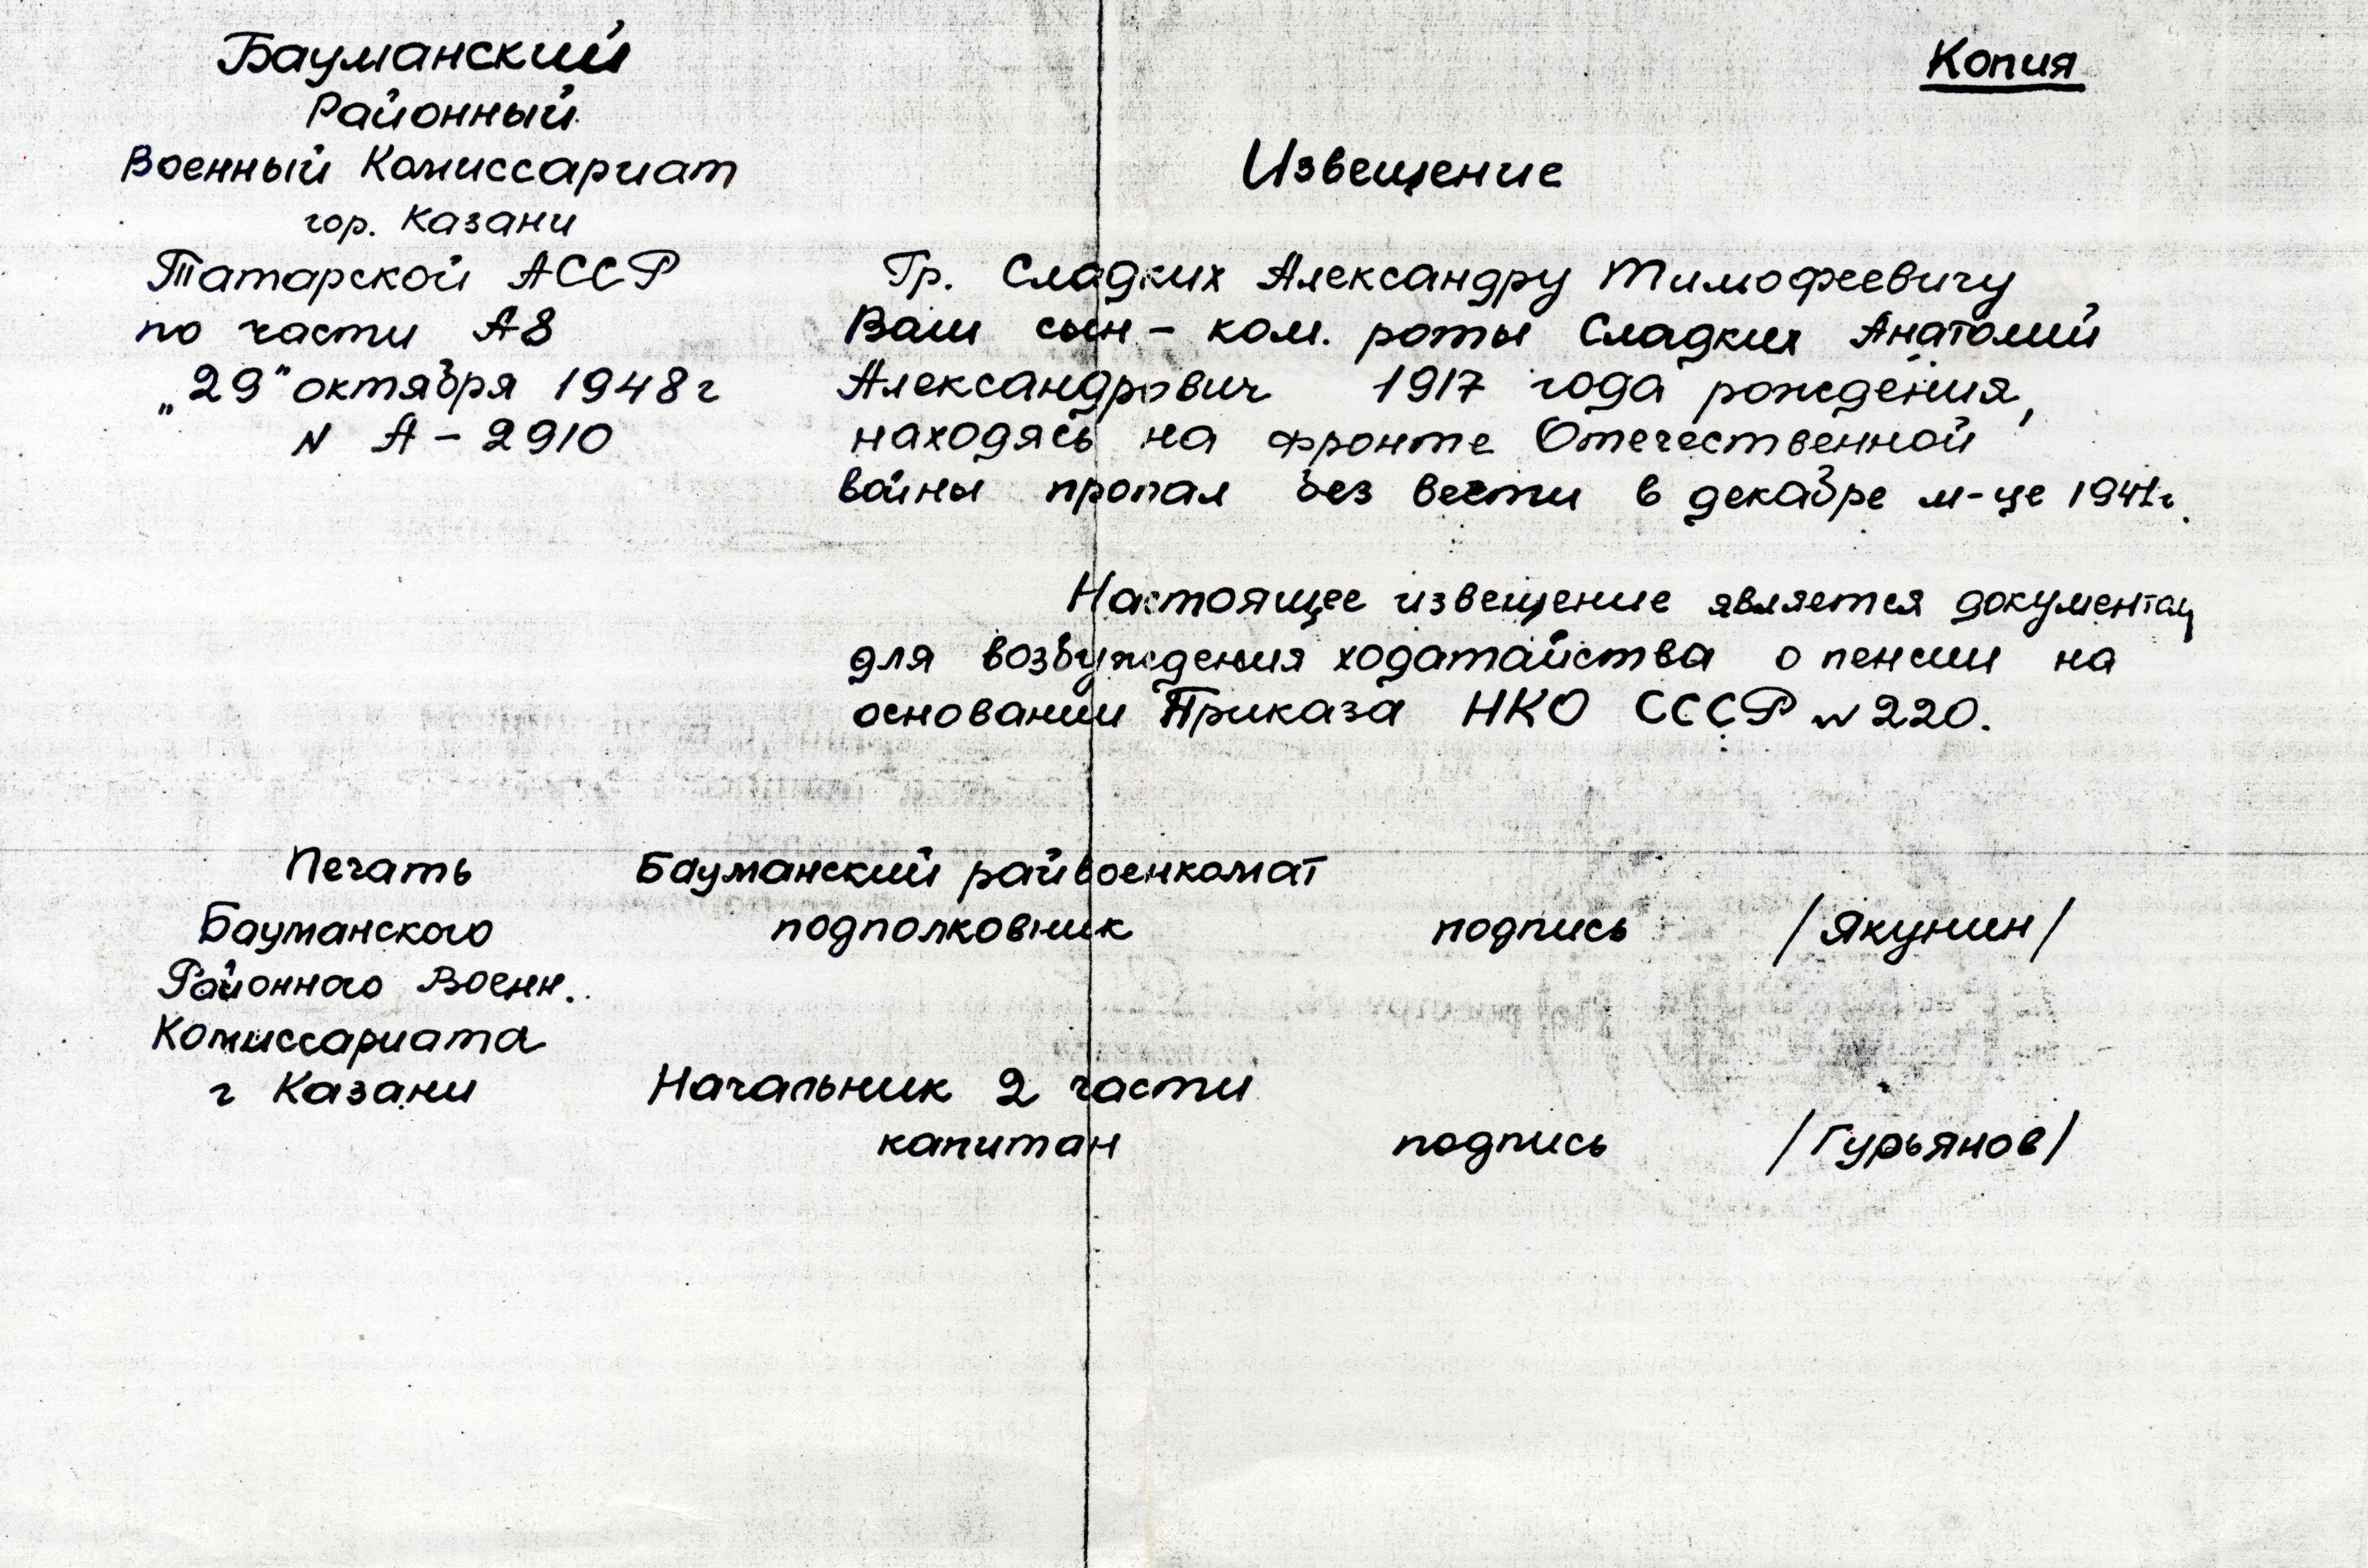 Бауманский
Районный
Военный Комиссариат
гор. Казани
Татарской АССР
по части А8
„29" октября 1948 г
N А – 2910
Копия
Извещение
Гр. Сладких Александру Тимофеевичу
Ваш сын – ком. роты Сладких Анатолий
Александрович 1917 года рождения,
находясь на фронте Отечественной
войны пропал без вести в декабре м-це 1941г.
Настоящее извещение является документом
для возбуждения ходатайства о пенсии на
основании Приказа НКО СССР N 220.
Печать
Бауманского
Районного Военн.
Комиссариата
г Казани
Бауманский райвоенкомат
подполковник подпись /Якунин/
Начальник 2 части
капитан подпись /Гурьянов/